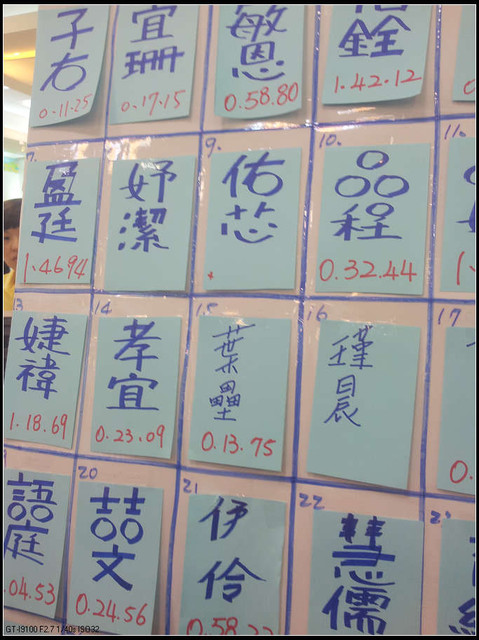 子右
0.11.25
宜珊
0.17.15
敏恩
0.58.80
銓
1.42.12
7.
盈廷
1.4694
妤潔
9.
佑芯
10.
品程
0.32.44
11.
13
婕禕
1.18.69
14
孝宜
0.23.09
15
葉壘
0.13.75
16
瑾晨
17
0.
語庭
.04.53
20
喆文
0.24.56
21
伊伶
0.58.22
22
慧儒
GT-I9100 F2.7 1/40s ISO32